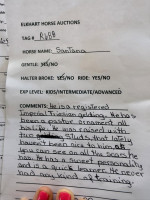 ELKHART HORSE AUCTIONS
TAG#
HORSE NAME: Santana
GENTLE: YES/NO
HALTER BROKE: YES/NO RIDE: YES/NO
EXP LEVEL: KIDS/INTERMEDIATE/ADVANCED
COMMENTS: He is a registered
Imperial Friesian gelding. He has
been a pasture ornament all
his life. He was raised with
two Studs that lately
haven't been nice to him. As
you can see on all the scars he
has. He has a sweet personality
and is a quick learner. He never
had any kind of training.